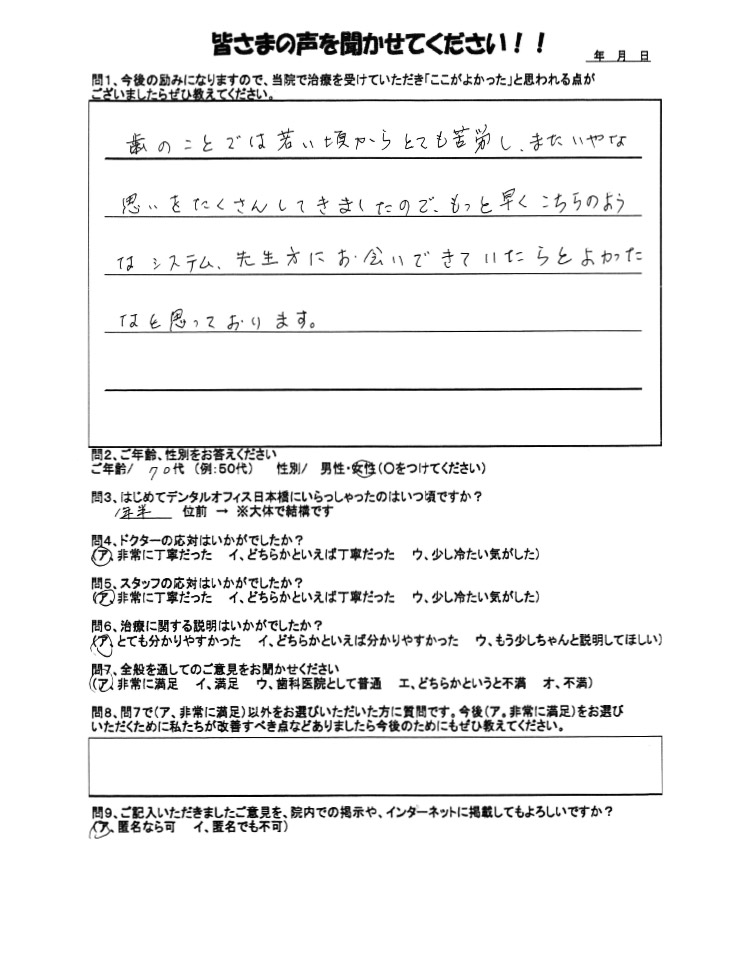 皆さまの声を聞かせてください！！
年 月 日
問1、今後の励みになりますので、当院で治療を受けていただき「ここがよかった」と思われる点が
ございましたらぜひ教えてください。
歯のことでは若い頃からとても苦労し、またいやな
思いをたくさんしてきましたので、もっと早くこちらのよう
なシステム、先生方にお会いできていたらとよかった
なと思っております。
問2、ご年齢、性別をお答えください
ご年齢/ 70代 （例：50代） 性別/ 男性・女性（○をつけてください）
問3、はじめてデンタルオフィス日本橋にいらっしゃったのはいつ頃ですか？
1年半 位前 → ※大体で結構です
問4、ドクターの応対はいかがでしたか？
（ア、非常に丁寧だった イ、どちらかといえば丁寧だった ウ、少し冷たい気がした）
問5、スタッフの応対はいかがでしたか？
（ア、非常に丁寧だった イ、どちらかといえば丁寧だった ウ、少し冷たい気がした）
問6、治療に関する説明はいかがでしたか？
（ア、とても分かりやすかった イ、どちらかといえば分かりやすかった ウ、もう少しちゃんと説明してほしい）
問7、全般を通してのご意見をお聞かせください
（ア、非常に満足 イ、満足 ウ、歯科医院として普通 エ、どちらかというと不満 オ、不満）
問8、問7で（ア、非常に満足）以外をお選びいただいた方に質問です。今後（ア。非常に満足）をお選び
いただくために私たちが改善すべき点などありましたら今後のためにもぜひ教えてください。
問9、ご記入いただきましたご意見を、院内での掲示や、インターネットに掲載してもよろしいですか？
（ア、匿名なら可 イ、匿名でも不可）